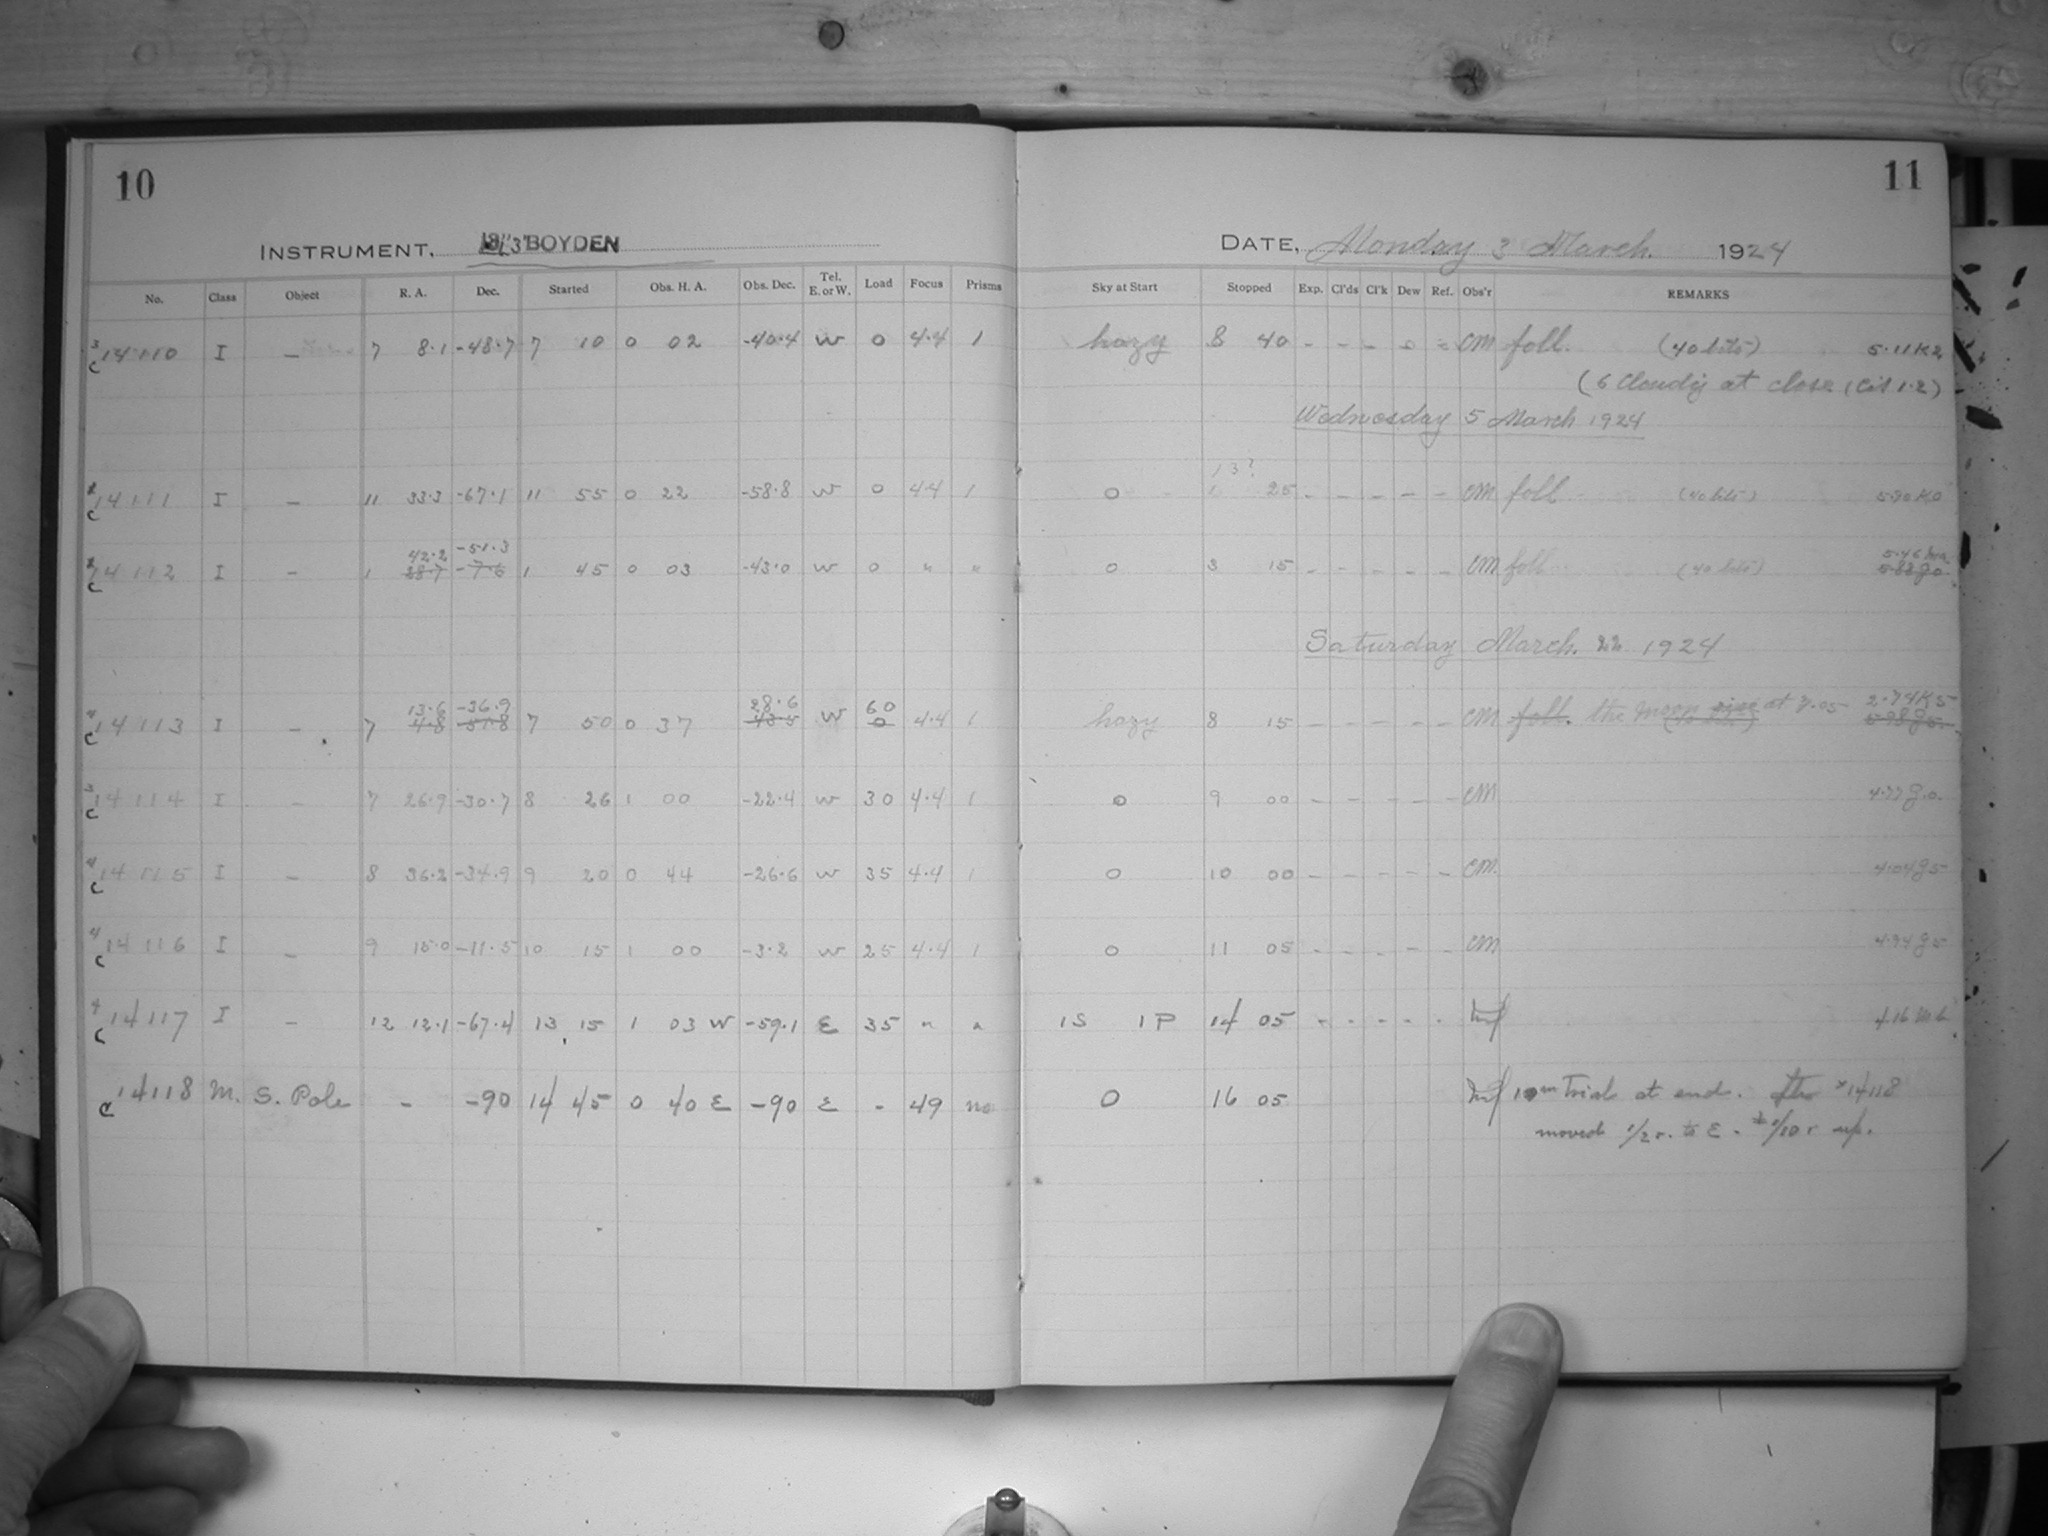 10
11
INSTRUMENT, 13" BOYDEN
DATE, Monday 3 March. 1924
No. Class Object R. A. Dec. Started Obs. H. A. Obs. Dec. Tel. E. or W. Load Focus Prisms Sky at Start Stopped Exp. Cl'ds Cl'k Dew Ref. Obs'r REMARKS
3 C 14110 I – 7 8.1 -48.7 7 10 0 02 -40.4 W 0 4.4 1 hazy 8 40 - - - - - CM foll. (40 bits) 5.11 K2
(6 Cloudy at close (Cis 1.2)
Wednesday 5 March 1924
13?
C 14111 I – 11 33.3 -67.1 11 55 0 22 -58.8 W 0 4.4 1 0 1 25 - - - - - CM foll (40 bits) 5.90 K0
42.2 -51.3 5.46
C 14112 I – 1 28.7 -7.6 1 45 0 03 -43.0 W 0 " " 0 3 15 - - - - - CM foll (40 bits) 5.82 g0
Saturday March. 22 1924
13.6 -36.9 28.6 60 2.74 K5
4 C 14113 I – 7 4.8 -51.8 7 50 0 37 43.5 W 0 4.4 1 hazy 8 15 - - - - - CM foll. the moon rise at 7.05 5.98 g5
3 C 14114 I – 7 26.9 -30.7 8 26 1 00 -22.4 W 30 4.4 1 0 9 00 - - - - - CM 4.77 g.0.
4 C 14115 I – 8 36.2 -34.9 9 20 0 44 -26.6 W 35 4.4 1 0 10 00 - - - - - CM. 4.04 g5
4 C 14116 I – 9 15.0 -11.5 10 15 1 00 -3.2 W 25 4.4 1 0 11 05 - - - - - CM 4.94 g5
4 C 14117 I – 12 12.1 -67.4 13 15 1 03 W -59.1 E 35 " " 1S 1P 14 05 - - - - - 4.16 M6
C 14118 M. S. Pole - -90 14 45 0 40 E -90 E - 49 no 0 16 05 10m Trials at end. After x14118
moved 1/2 r. to E. + 1/10 r up.